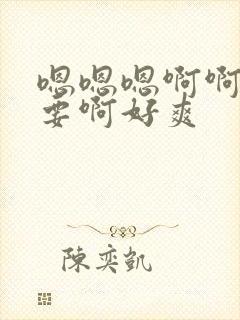 嗯嗯嗯啊啊
要啊好爽
陈奕凯